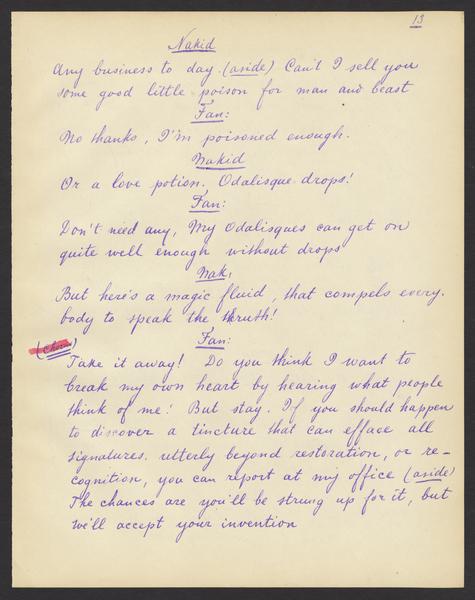 13
Nakid
Any business to day. (aside) Can't I sell you
some good little poison for man and beast
Fan:
No thanks, I'm poisoned enough.
Nakid
Or a love potion. Odalisque drops!
Fan:
Don't need any, My Odalisques can get on
quite well enough without drops
Nak,
But here's a magic fluid, that compels every-
body to speak the thruth!
Fan:
(Chorus)
Take it away! Do you think I want to
break my own heart by hearing what people
think of me! But stay. If you should happen
to discover a tincture that can efface all
signatures. utterly beyond restoration, or re-
cognition, you can report at my office (aside)
The chances are you'll be strung up for it, but
we'll accept your invention